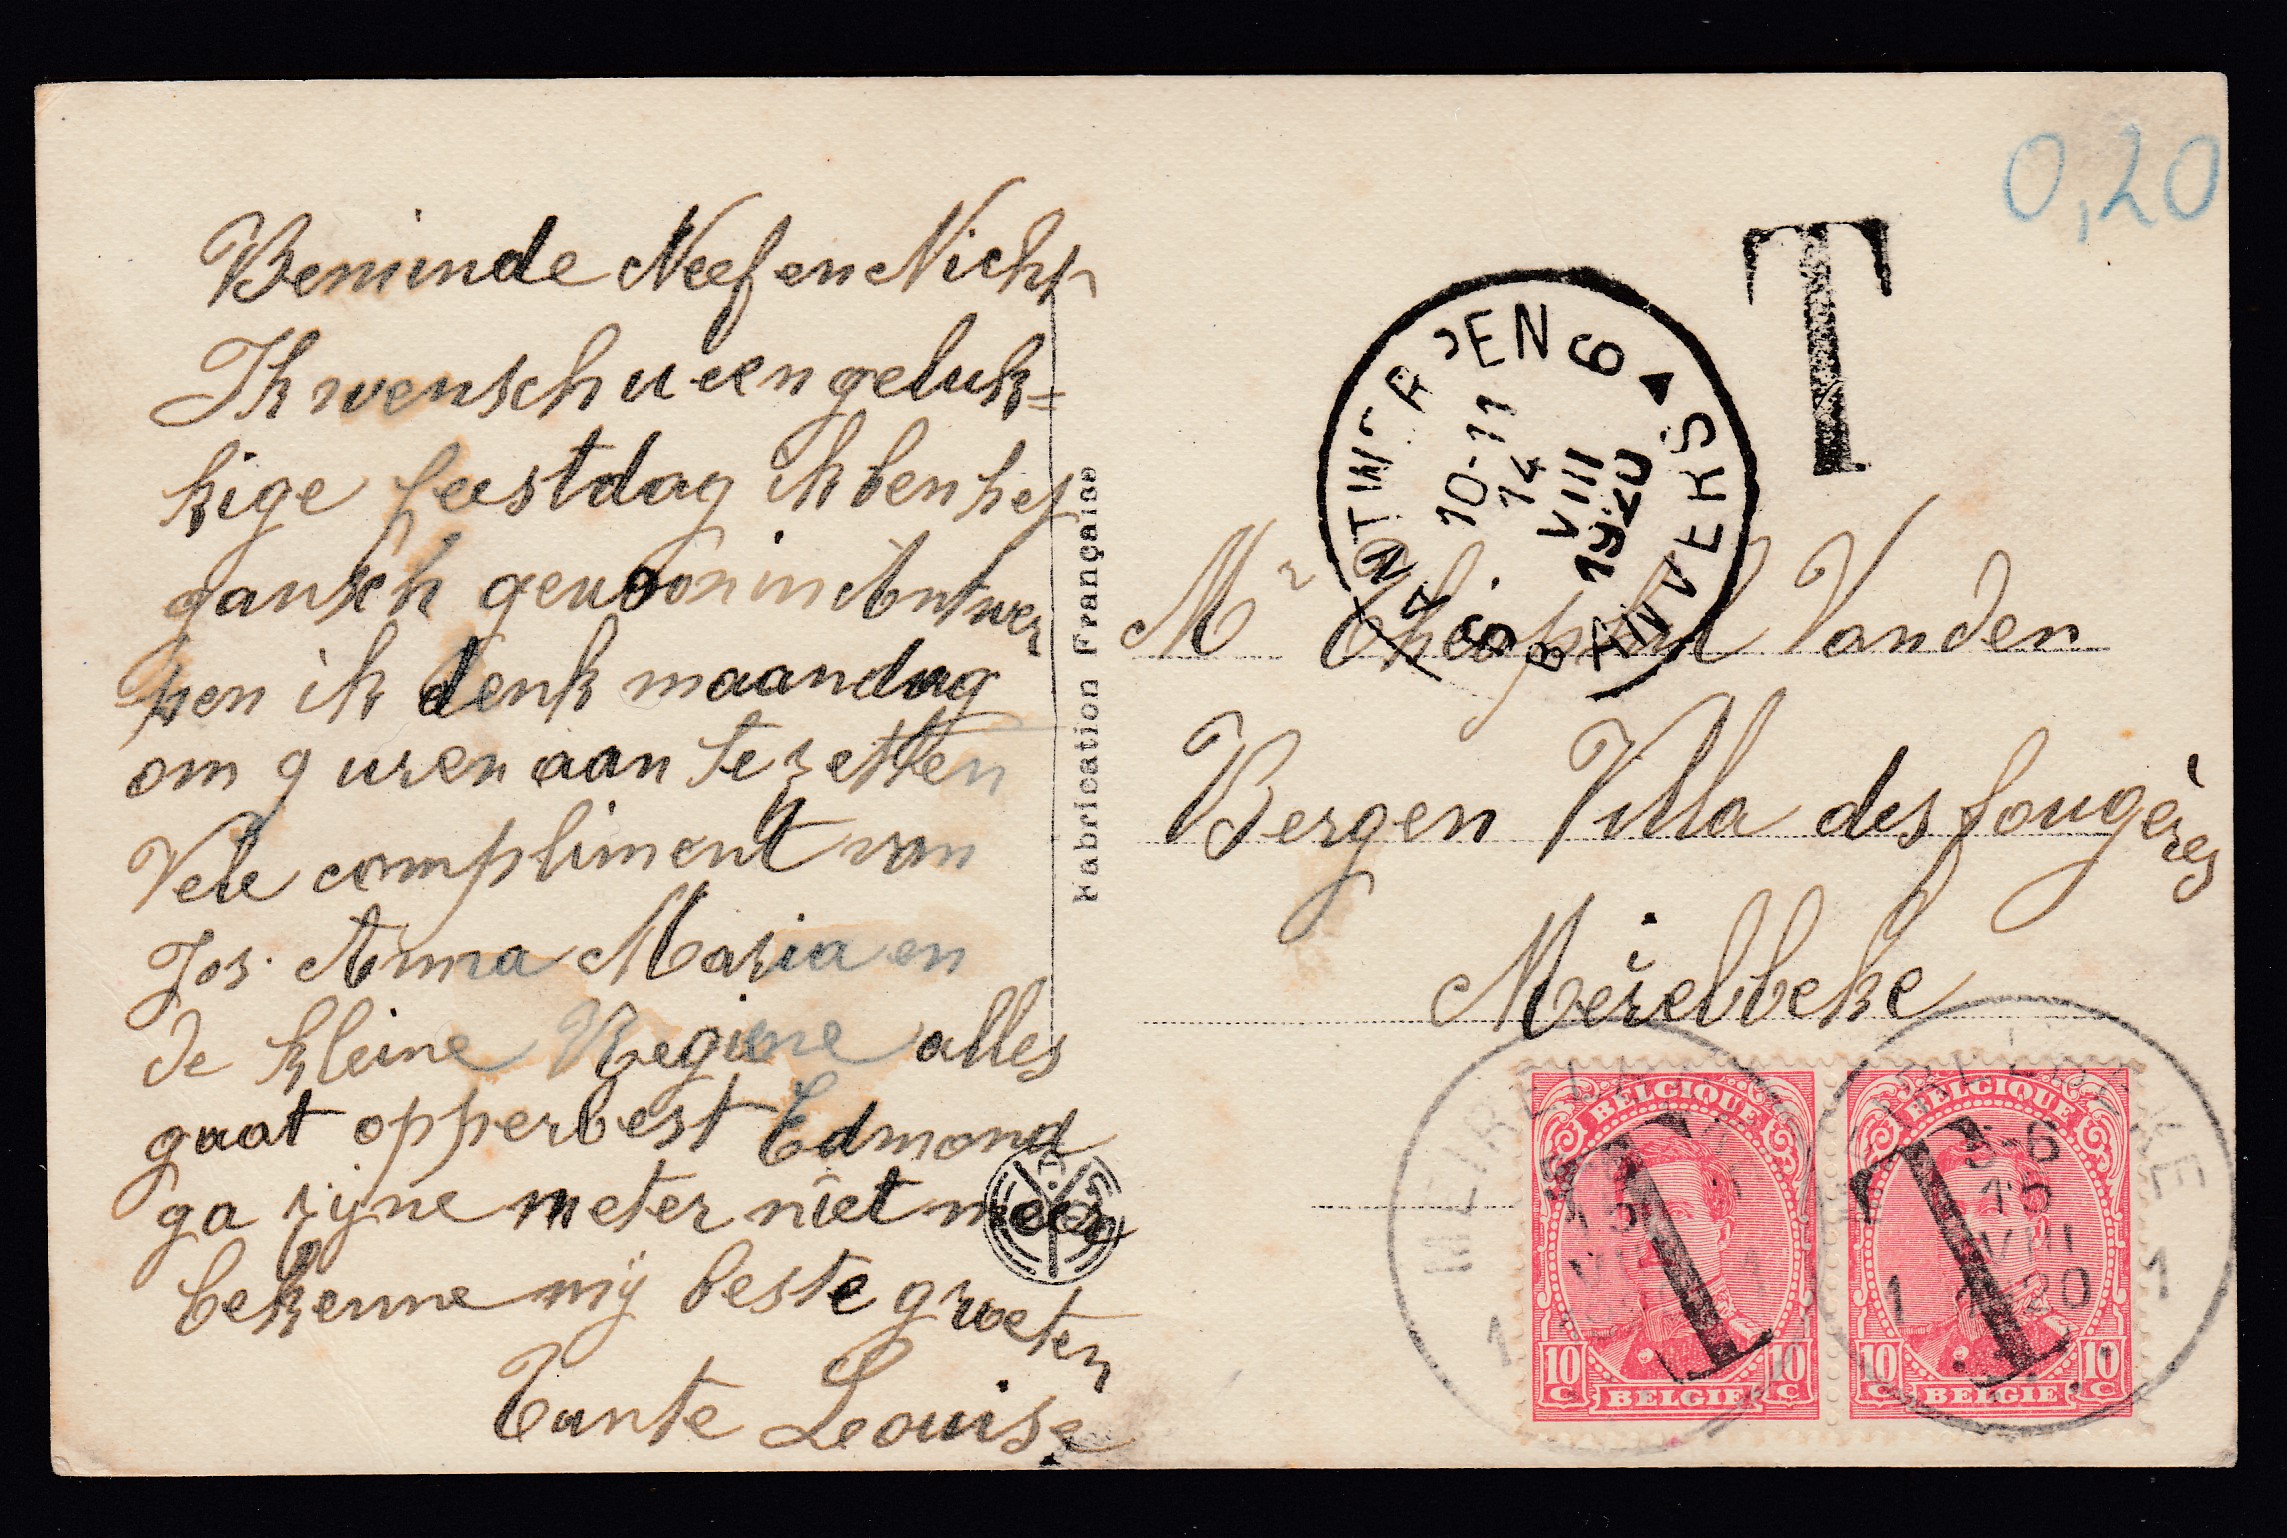 Beminde Neef en Nicht
Ik wensch u een geluk=
kige feestdag ik ben hef
gansch gewoon in Antwer
pen ik denk maandag
om 9 uren aan te zetten
Vele compliment van
Jos. Anna Maria en
de kleine Regiene alles
gaat opperbest Edmond
ga zijne meter niet meer
bekenne mij beste groeten
Tante Louise
Fabrication Française
0,20
T
ANTWERPEN 6
10-11
14
VIII
1920
6 ANVERS
Mr Theophiel Vanden
Bergen Villa des fougères
Meirelbeke
MEIRELBEKE
15
1
BELGIQUE
T
10 C
10 C
BELGIE
MEIRELBEKE
5-6
15
VIII
1920
1 1
BELGIQUE
T
10 C
10 C
BELGIE